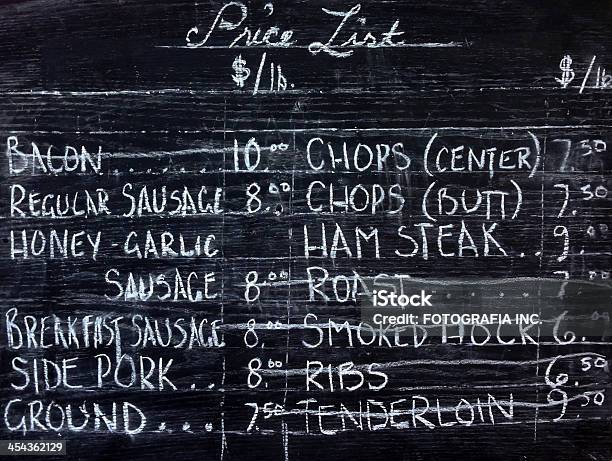 Price List
$/lb. $/lb
BACON...... 10.00 CHOPS (CENTER) 7.50
REGULAR SAUSAGE 8.00 CHOPS (BUTT) 7.50
HONEY-GARLIC HAM STEAK.. 9.00
SAUSAGE 8.00 ROAST
BREAKFAST SAUSAGE 8.00 SMOKED HOCK 6.00
SIDE PORK... 8.00 RIBS 6.50
GROUND.... 7.50 TENDERLOIN 9.50
iStock
Credit: FOTOGRAFIA INC.
454362129